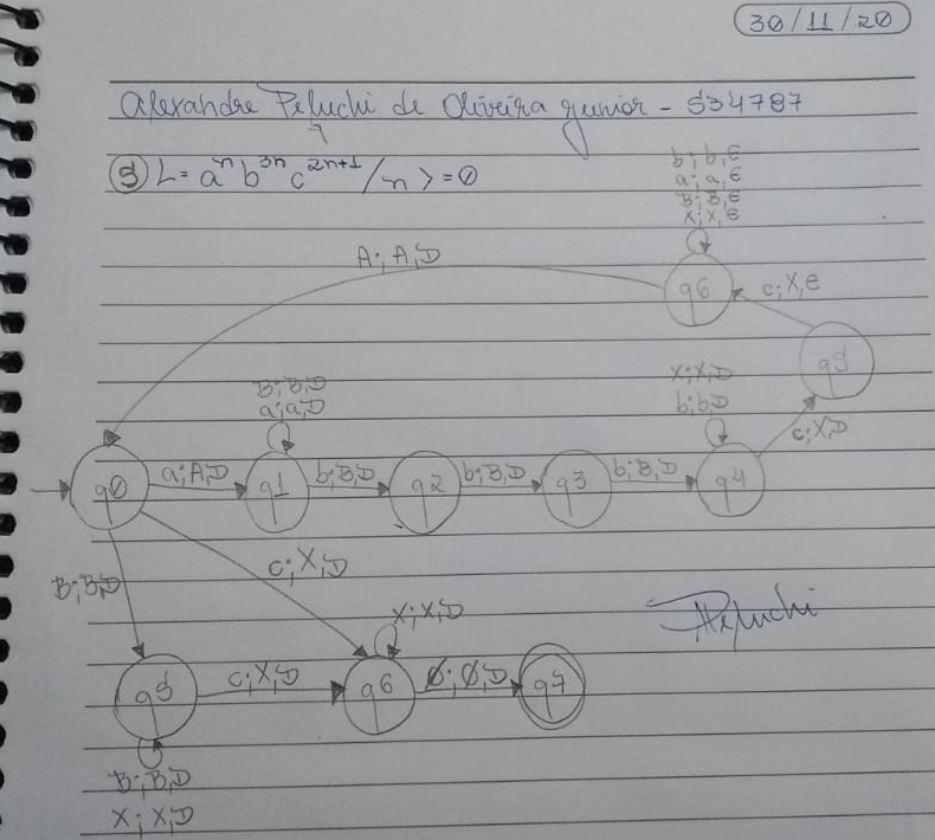 30/11/20
Alexandre Peluchi de Oliveira Junior - 534787
3) L = aⁿ b³ⁿ c²ⁿ⁺¹ / n >= 0
b; b, e
a; a, e
B; B, e
x; x, e
A; A, D
q6
c; X, e
q5
B; B, D
a; a, D
x; x, D
b; b, D
c; X, D
q0
a; A, D
q1
b; B, D
q2
b; B, D
q3
b; B, D
q4
c; X, D
B; B, D
X; X, D
Peluchi
q5
c; X, D
q6
Ø; Ø, D
q7
B; B, D
X; X, D